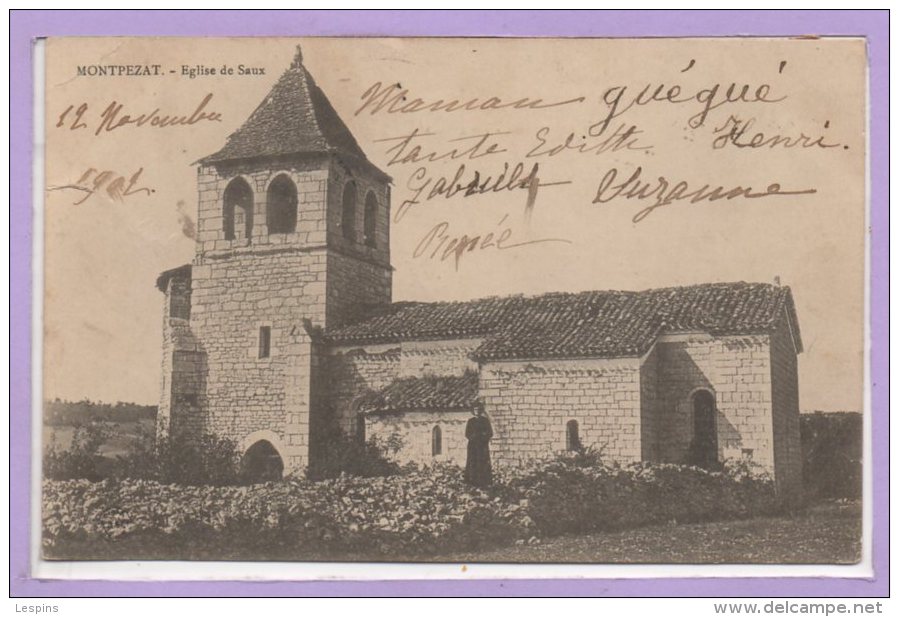 MONTPEZAT. - Eglise de Saux
12 Novembre
1902.
Maman guégué
tante Edith Henri.
Gabriel Suzanne
Renée
Lespins
www.delcampe.net